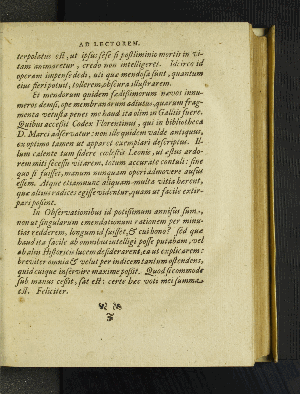 AD LECTOREM.
terpolatus est, ut ipsus sese si postliminio mortis in vi-
tam animaretur, credo non intelligeret. Idcirco id
operam impense dedi, uti quæ mendosa sunt, quantum
eius fieri potuit, tollerem, obscura illustrarem.
Et mendorum quidem fœdissimorum nævos innu-
meros demsi, ope membranarum adiutus, quarum frag-
menta vetusta penes me haud ita olim in Galliis fuere.
Quibus accessit Codex Florentinus, qui in bibliotheca
D. Marci adservatur: non ille quidem valde antiquus,
ex optimo tamen ut apparet exemplari descriptus. Il-
lum calente tum sidere cælestis Leonis, ut æstus ardo-
rem miti secessu vitarem, totum accurate contuli: sine
quo si fuisset, manum nunquam operi admovere ausus
essem. Atque etiamnunc aliquam multa vitia hærent,
quæ altius radices egisse videntur, quam ut facile extir-
pari possint.
In Observationibus id potissimum annisus sum,
non ut singularum emendationum rationem per minu-
tias redderem, longum id fuisset, & cui bono? sed quæ
haud ita facile ab omnibus intelligi posse putabam, vel
ab aliis Historicis lucem desiderarent, ea ut explicarem:
breviter omnia & velut per indicem tantum ostendens,
quid cuique inservire maxime possit. Quod si commode
sub manus cessit, sat est: certe hæc voti mei summa
est. Feliciter.